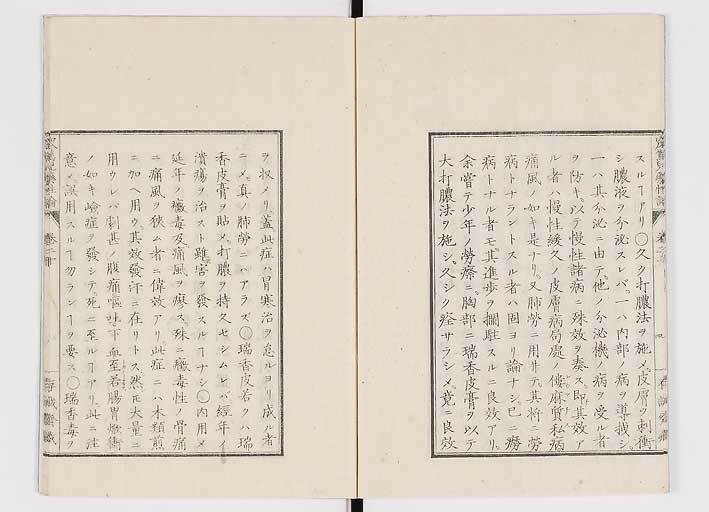 スルヿアリ○久ク打膿法ヲ施メ皮膚ヲ刺衝
シ膿液ヲ分泌スレバ一ハ内部ノ病ヲ導拔シ
一ハ其分泌ニ由テ他ノ分泌機ノ病ヲ受ル者
ヲ防キ以テ慢性諸病ニ殊效ヲ奏ス即其效ア
ル者ハ慢性緩久ノ皮膚病局處ノ僂麻質私病
痛風ノ如キ是ナリ又肺勞ニ用井テ其將ニ勞
病トナラントスル者ハ固ヨリ論ナシ已ニ癆
病トナル者モ其進歩ヲ攔駐スルニ良效アリ
余嘗テ少年ノ勞瘵ニ胸部ニ瑞香皮膏ヲ以テ
大打膿法ヲ施シ久シク痊サラシメ竟ニ良效
ヲ収メリ蓋此症ハ冒寒治ヲ怠ルヨリ成ル者
ニメ真ノ肺勞ニハアラズ○瑞香皮若クハ瑞
香皮膏ヲ貼メ打膿ヲ持久セシムレバ經年ノ
潰瘍ヲ治スト雖害ヲ發スルヿナシ○内用メ
延年ノ黴毒及痛風ヲ療ス殊ニ黴毒性ノ骨痛
ニ痛風ヲ狹ム者ニ偉效アリ此症ニハ木類煎
ニ加ヘ用ウ其效發汗ニ在リトス然𪜈大量ニ
用ウレバ劇甚ノ腹痛嘔吐下血至若腸胃焮衝
ノ如キ嶮症ヲ發シテ死ニ至ルヿアリ此ニ注
意メ誤用スルヿ勿ランヿヲ要ス○瑞香毒ヲ